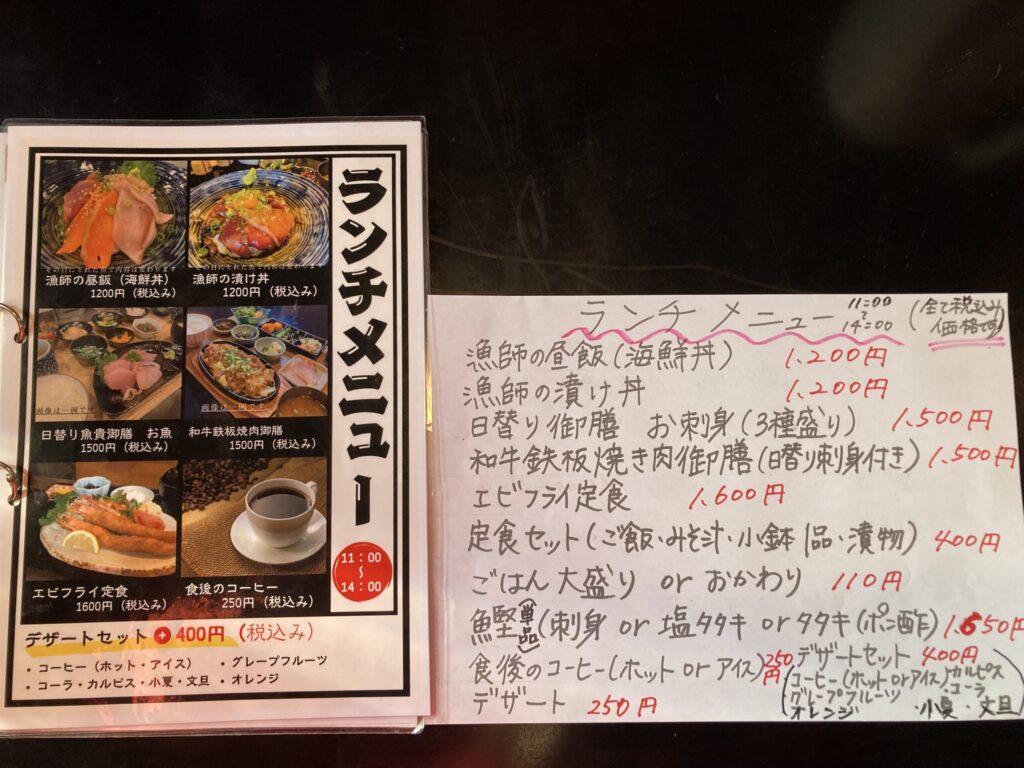 ランチメニュー
11：00
～
14：00
その日にとれた魚で内容は変わります
漁師の昼飯（海鮮丼）
1200円（税込み）
その日にとれた魚で内容は変わります
漁師の漬け丼
1200円（税込み）
画像は一例です
日替り魚貴御膳　お魚
1500円（税込み）
画像は一例です
和牛鉄板焼肉御膳
1500円（税込み）
エビフライ定食
1600円（税込み）
食後のコーヒー
250円（税込み）
デザートセット＋400円（税込み）
・コーヒー（ホット・アイス）　・グレープフルーツ
・コーラ・カルピス・小夏・文旦　・オレンジ
ランチメニュー 11:00〜14:00 (全て税込み価格です)
漁師の昼飯(海鮮丼) 1,200円
漁師の漬け丼 1,200円
日替り御膳 お刺身(3種盛り) 1,500円
和牛鉄板焼き肉御膳(日替り刺身付き) 1,500円
エビフライ定食 1,600円
定食セット(ご飯・みそ汁・小鉢1品・漬物) 400円
ごはん大盛り or おかわり 110円
鰹(単品)(刺身 or 塩タタキ or タタキ(ポン酢) 1,650円
食後のコーヒー(ホット or アイス) 250円
デザート 250円
デザートセット 400円
(コーヒー(ホット or アイス)・カルピス
グレープフルーツ ・コーラ
オレンジ ・小夏・文旦)